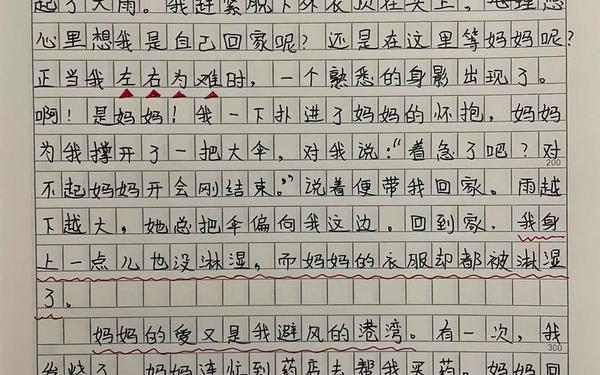 起了大雨。我赶紧脱下外衣顶在头上,
心里想我是自己回家呢?还是在这里等妈妈呢?
正当我左右为难时,一个熟悉的身影出现了。
啊!是妈妈!我一下扑进了妈妈的怀抱,妈妈
为我撑开了一把大伞,对我说:“着急了吧?对
200
不起妈妈开会刚结束。”说着便带我回家。雨越
下越大,她总把伞偏向我这边。回到家,我身
上一点儿也没淋湿,而妈妈的衣服却都被淋湿
了。
妈妈的爱又是我避风的港湾。有一次,我
300
发烧了,妈妈连忙到药店去帮我买药。妈妈回